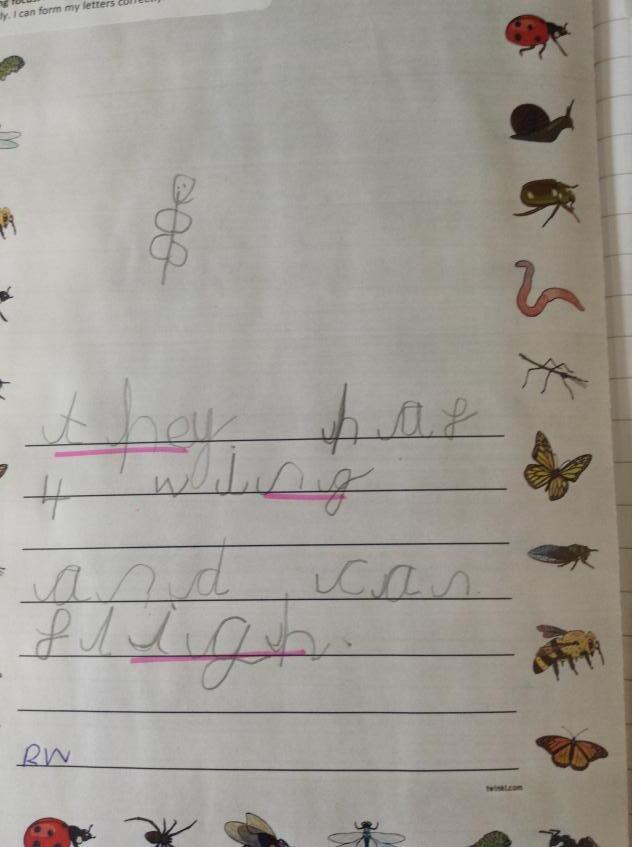 ly. I can form my letters correctly.
they has
4 wing
and can
fligh.
RW
twinkl.com